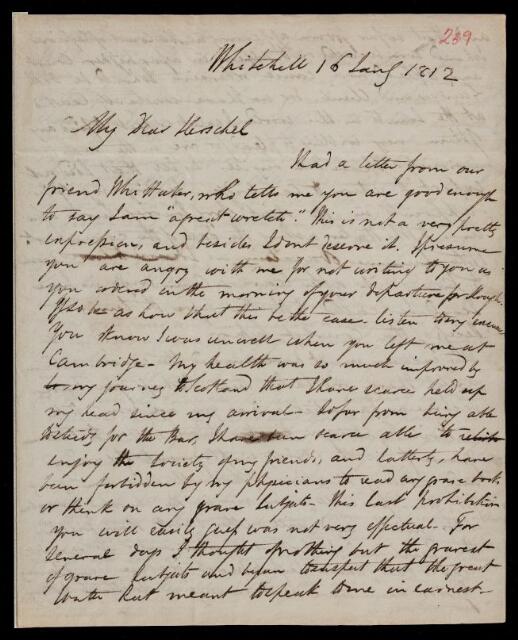 239
Whitehill 16 Jany 1812
My Dear Herschel
I had a letter from our
friend Whittaker, who tells me you are good enough
to say I am "a great wretch." This is not a very pretty
expression, and besides I dont deserve it. I presume
you are angry with me for not writing to you as
you ordered in the morning of your departure for Slough.
as how that this be the case listen to my
You know I was unwell when you left me at
Cambridge - My health was so much improved by
my journey to Scotland that I have scarce held up
my head since my arrival - So far from being able
to study for the Bar, I have been scarce able to
enjoy the society of my friends, and latterly, have
been forbidden by my physicians to read any grave book
or think on any grave subject - This last prohibition
you will easily guess was not very effectual. For
several days I thought of nothing but the gravest
of grave subjects and began to suspect that the great
meant to speak to me in earnest -